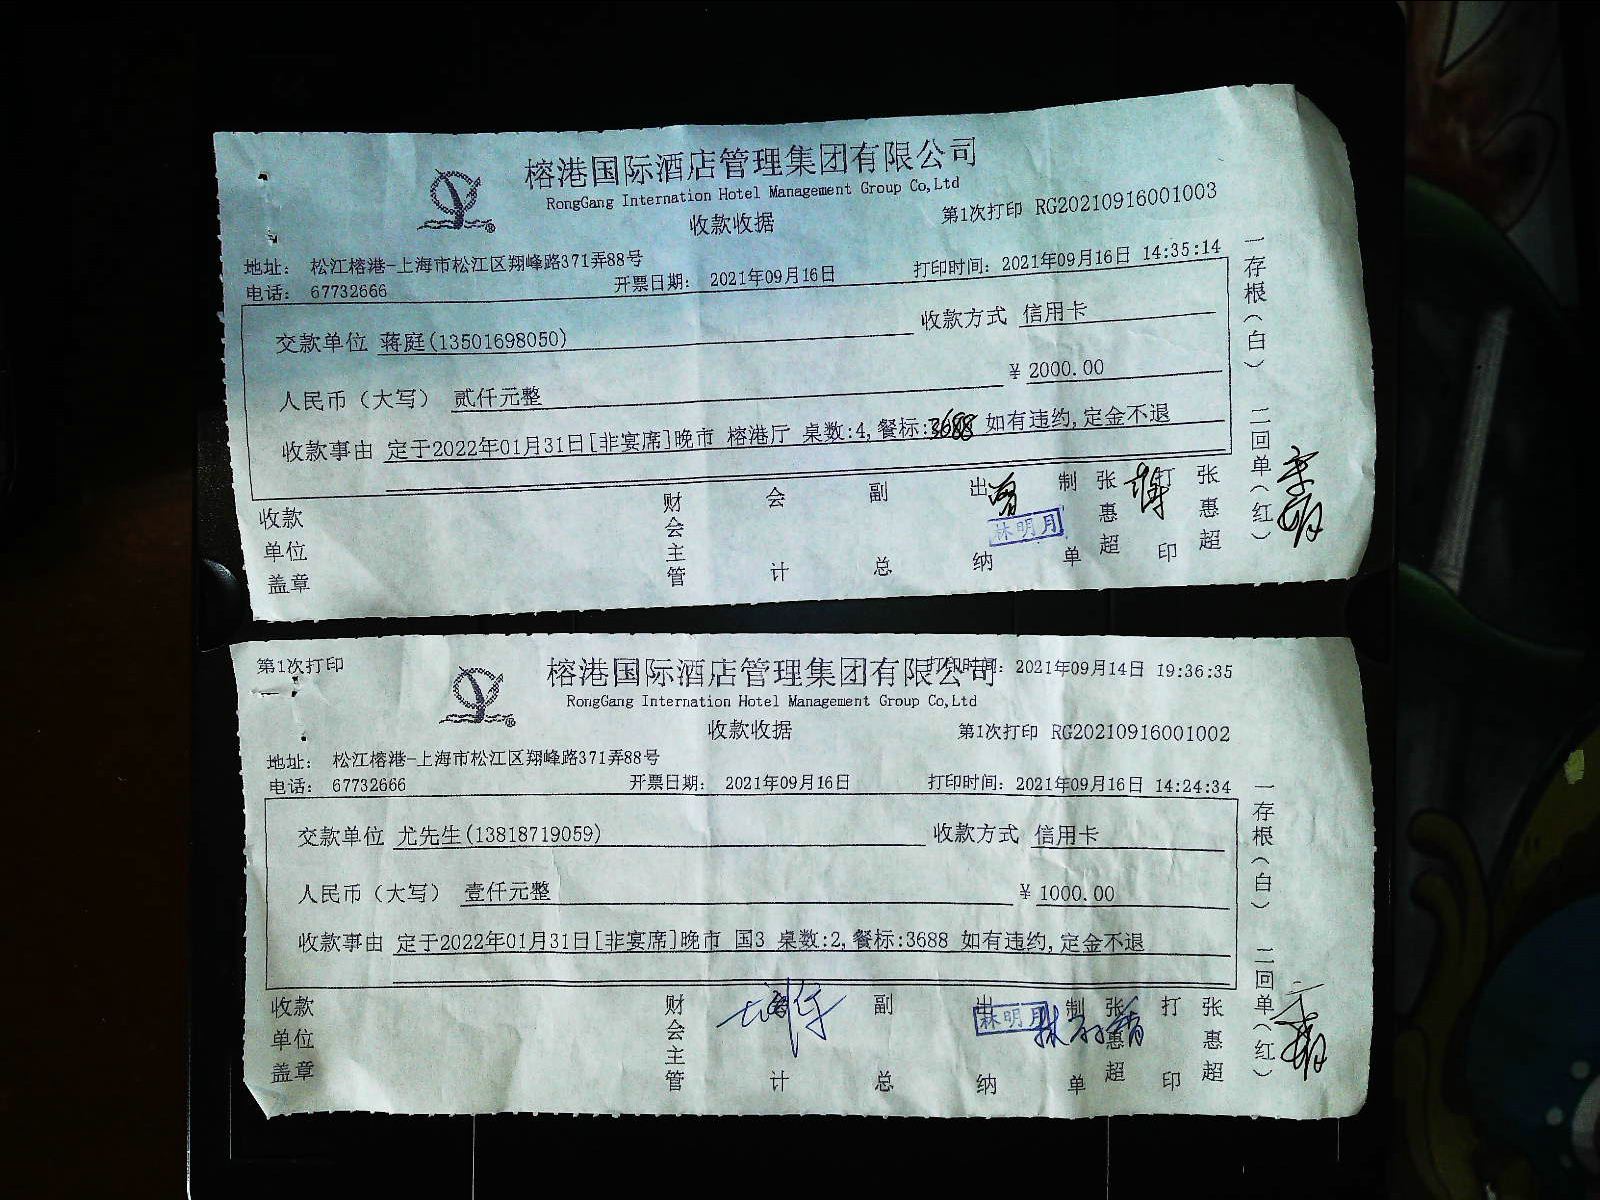 榕港国际酒店管理集团有限公司
RongGang Internation Hotel Management Group Co,Ltd
收款收据
第1次打印 RG20210916001003
地址: 松江榕港-上海市松江区翔峰路371弄88号
电话: 67732666 开票日期: 2021年09月16日 打印时间: 2021年09月16日 14:35:14
交款单位 蒋庭(13501698050) 收款方式 信用卡
人民币（大写） 贰仟元整 ¥ 2000.00
收款事由 定于2022年01月31日[非宴席]晚市 榕港厅 桌数:4,餐标:3688 如有违约,定金不退
收款单位盖章 财会主管 会计 副总 出纳 林明月 制单 张惠超 打印 张惠超
一存根（白） 二回单（红）
第1次打印 榕港国际酒店管理集团有限公司 打印时间: 2021年09月14日 19:36:35
RongGang Internation Hotel Management Group Co,Ltd
收款收据
第1次打印 RG20210916001002
地址: 松江榕港-上海市松江区翔峰路371弄88号
电话: 67732666 开票日期: 2021年09月16日 打印时间: 2021年09月16日 14:24:34
交款单位 尤先生(13818719059) 收款方式 信用卡
人民币（大写） 壹仟元整 ¥ 1000.00
收款事由 定于2022年01月31日[非宴席]晚市 国3 桌数:2,餐标:3688 如有违约,定金不退
收款单位盖章 财会主管 会计 副总 出纳 林明月 制单 张惠超 打印 张惠超
一存根（白） 二回单（红）